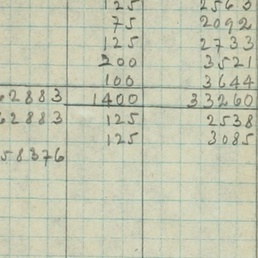 125 2563
75 2092
125 2733
200 3521
100 3644
62883 1400 33260
62883 125 2538
125 3085
58376